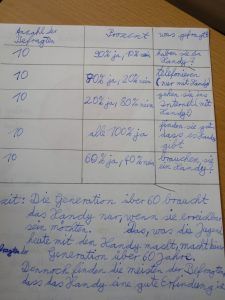 Anzahl der Befragten Prozent was gefragt
10 90% ja, 10% nein haben sie ein Handy?
10 80% ja, 20% nein telefonieren nur mit Handy?
10 20% ja, 80% nein gehen sie ins Internet mit Handy?
10 alle 100% ja finden sie gut, dass es Handy gibt
10 60% ja, 40% nein brauchen sie ein Handy?
zit: Die Generation über 60 braucht
das Handy nur, wenn sie erreichbar
sein möchten. Das, was die Jugend
heute mit den Handy macht, macht
Generation über 60 Jahre.
Dennoch finden die meisten der Befragten
dass das Handy eine gute Erfindung ist